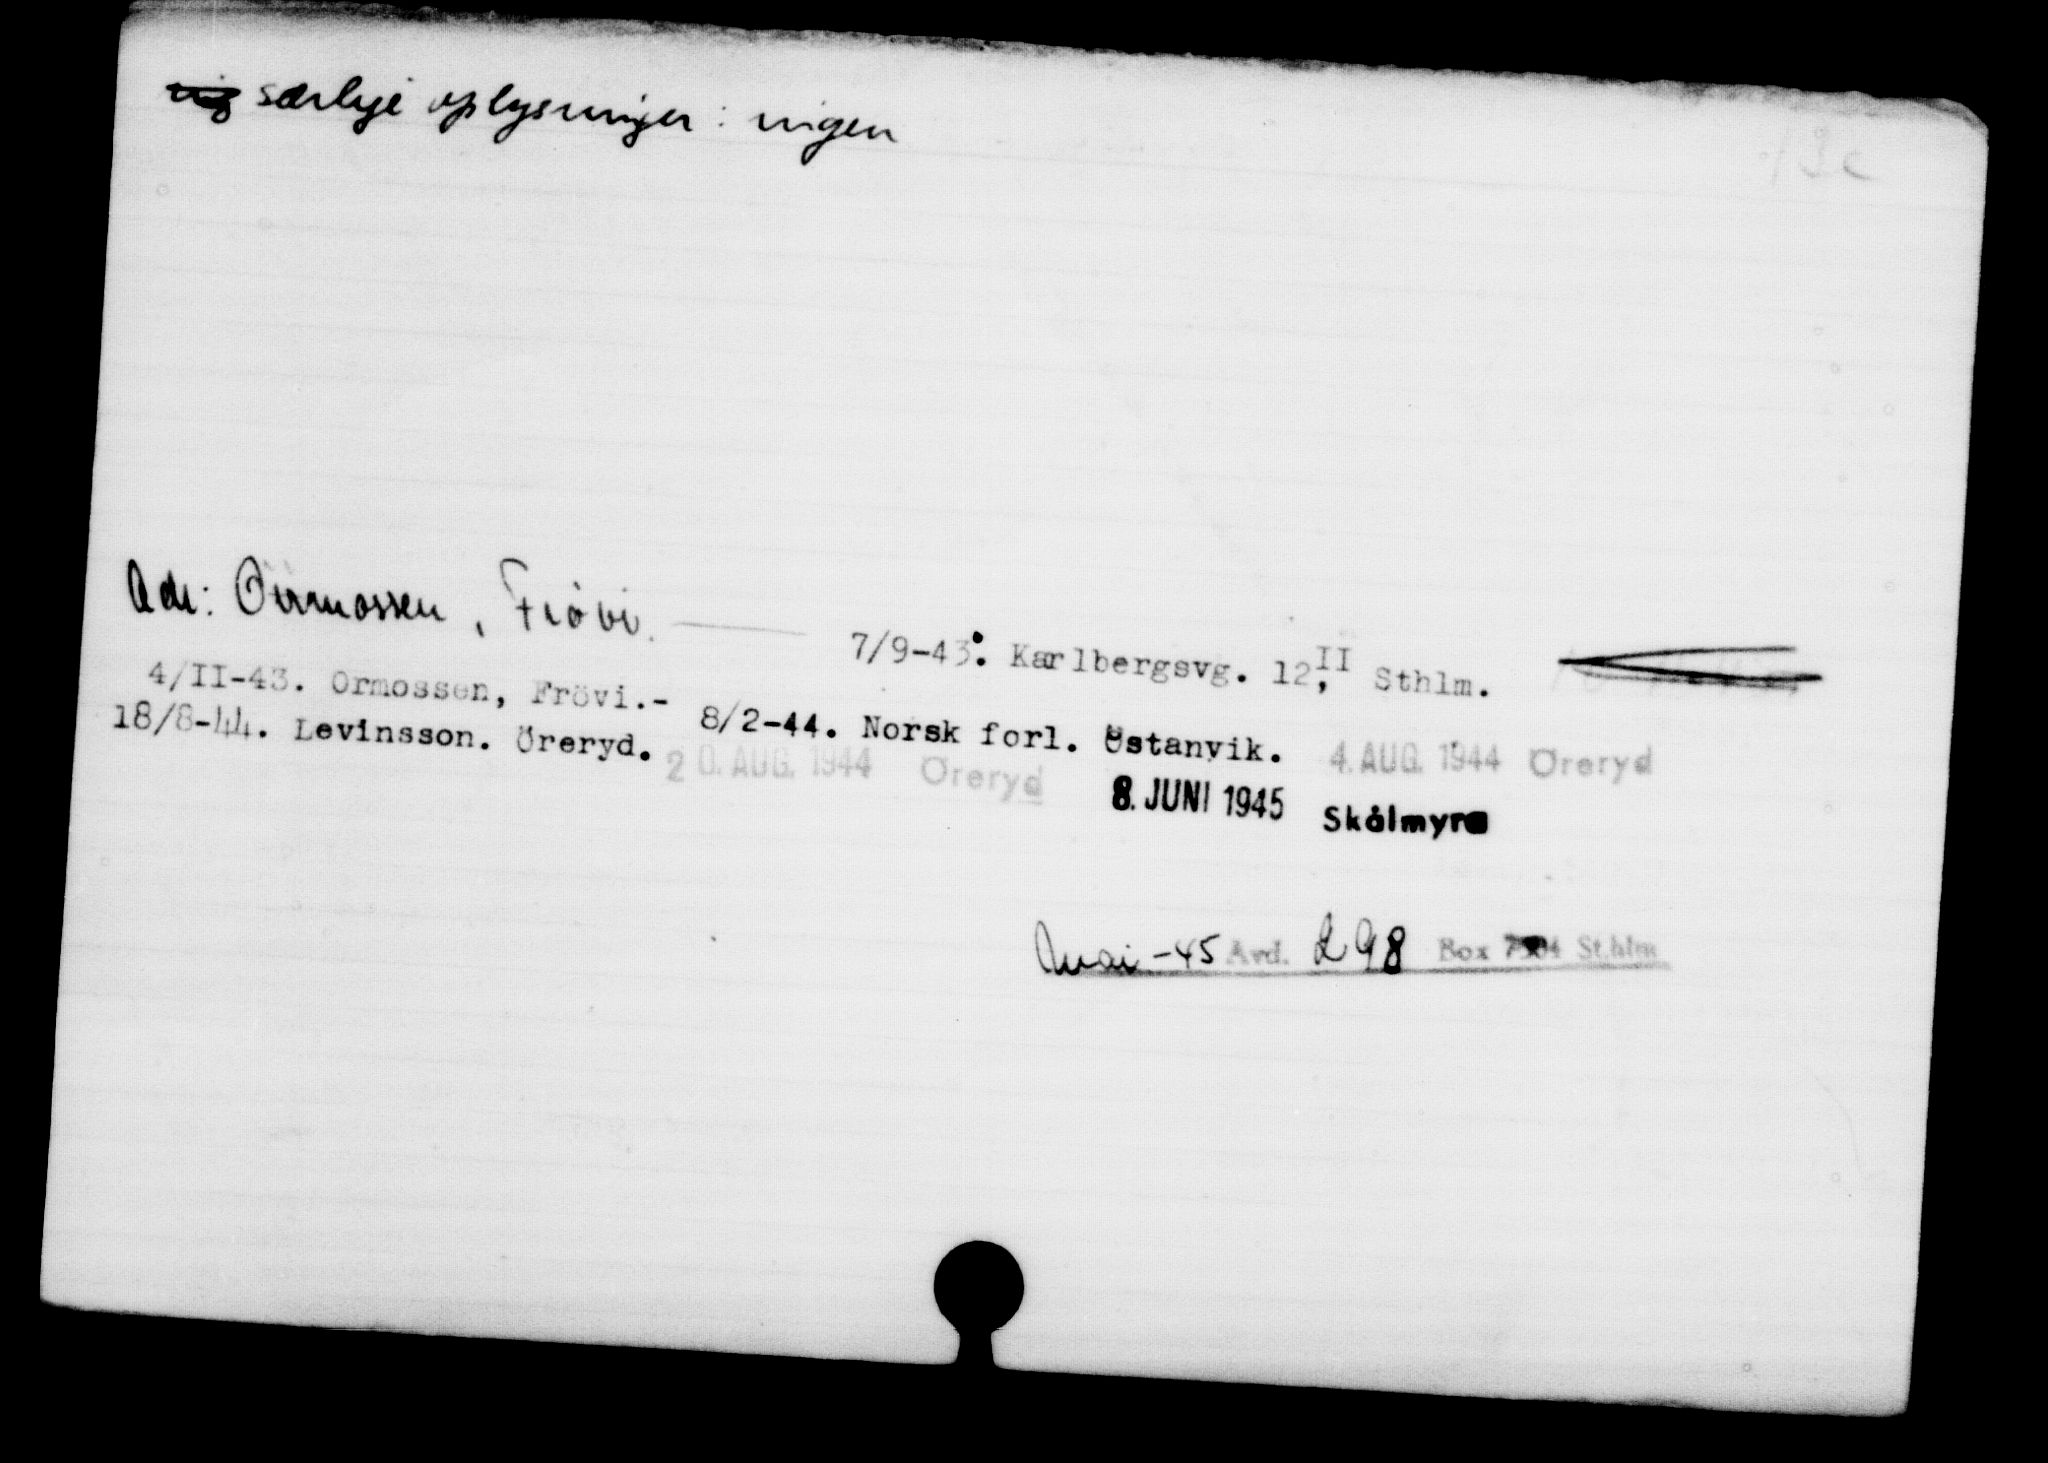 særlige oplysninger: ingen
Adr: Ormossen, Frövi.
7/9-43. Karlbergsvg. 12, II Sthlm.
4/II-43. Ormossen, Frövi.-
8/2-44. Norsk forl. Östanvik.
4. AUG. 1944 Öreryd
18/8-44. Levinsson. Öreryd.
20. AUG. 1944 Öreryd
8. JUNI 1945 Skålmyra
Mai -45 Avd. 298 Box Sthlm